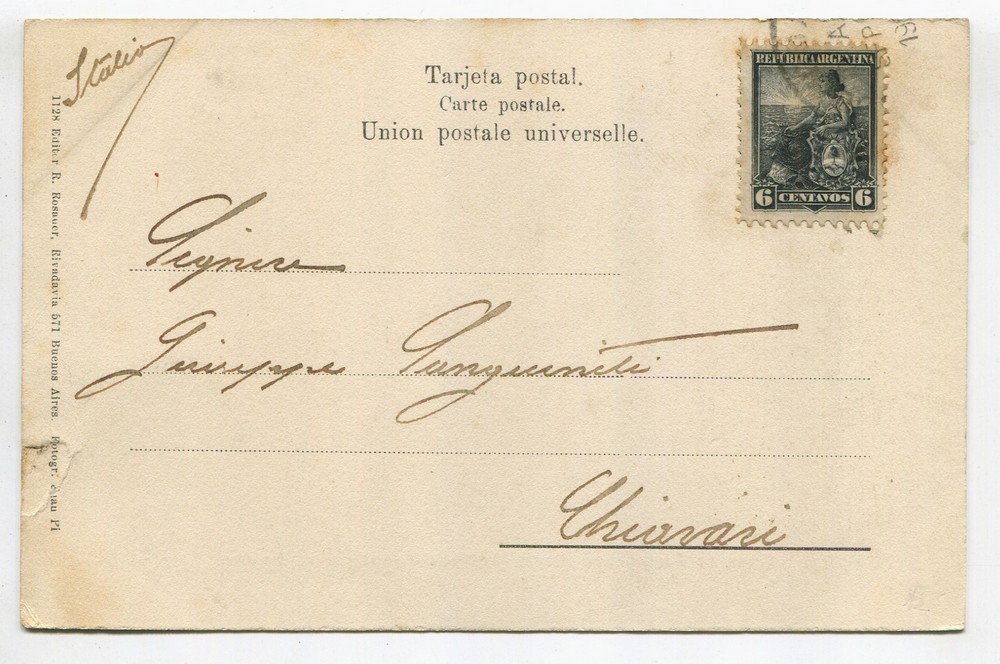 Italia
Tarjeta postal.
Carte postale.
Union postale universelle.
REPUBLICA ARGENTINA
6 CENTAVOS 6
Signore
Giuseppe Sanguineti
Chiavari
1128 Editor R. Rosauer, Rivadavia 571 Buenos Aires Fotogr. Juan Pi